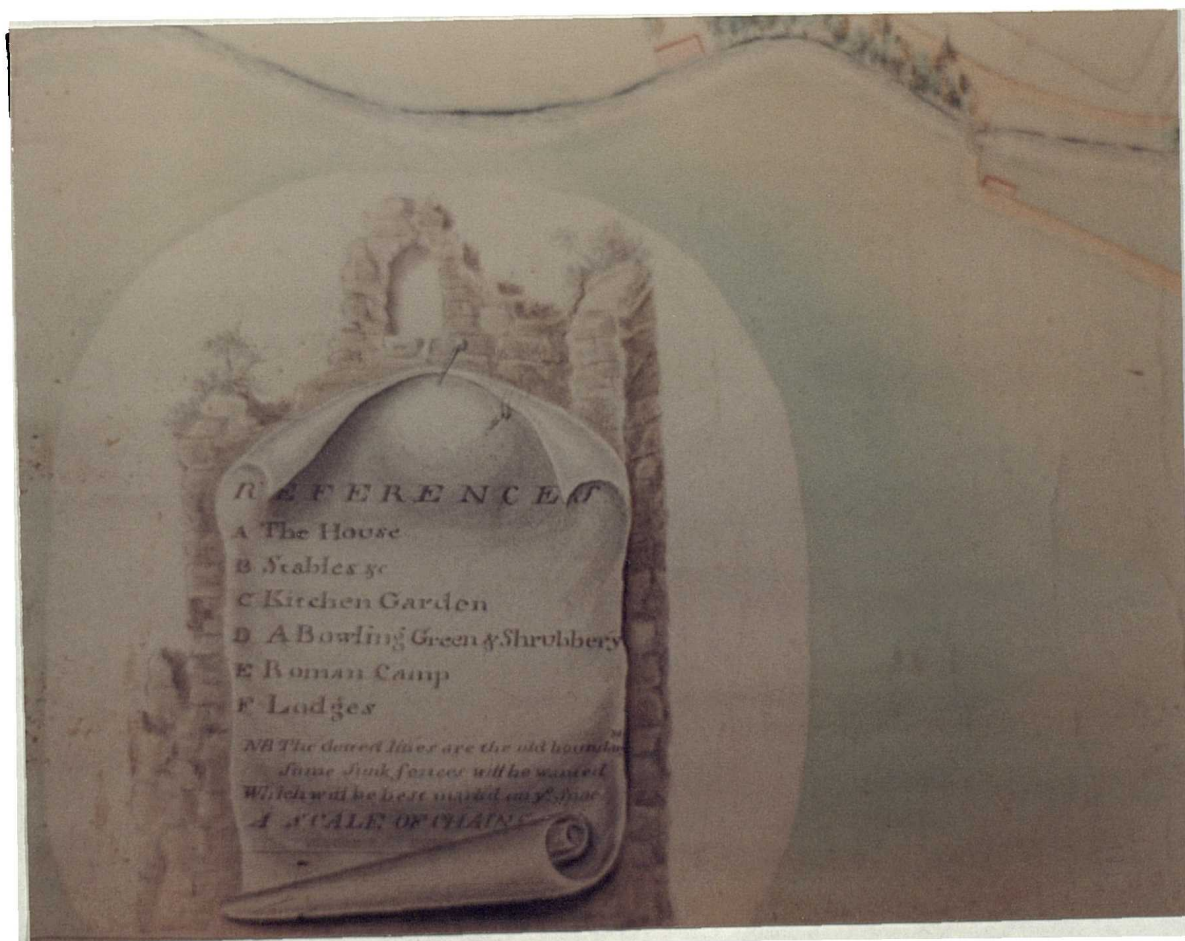 REFERENCES
A The House
B Stables &c
C Kitchen Garden
D A Bowling Green & Shrubbery
E Roman Camp
F Lodges
NB The doted lines are the old
Some Sunk fences will be wanted
Which will be best mark'd on ye
A SCALE OF CHAINS